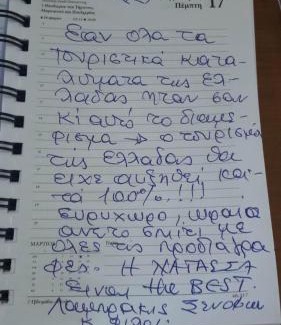 Πέμπτη 17
Εαν ολα τα
τουριστικά κατα-
λυματα της ελ-
λαδας ηταν σαν
κι αυτό το διαμε-
ρισμα → ο τουρισμός
της ελλαδας θα
ειχε αυξηθεί κα-
τά 100% !!!
ευρυχωρο, ωραιο
ανετο σπίτι με
ολες τις προδιαγρα
φες. Η ΧΑΤΑΣΣΑ
Ειναι the BEST.
Λαμπρακης Ξενοφων